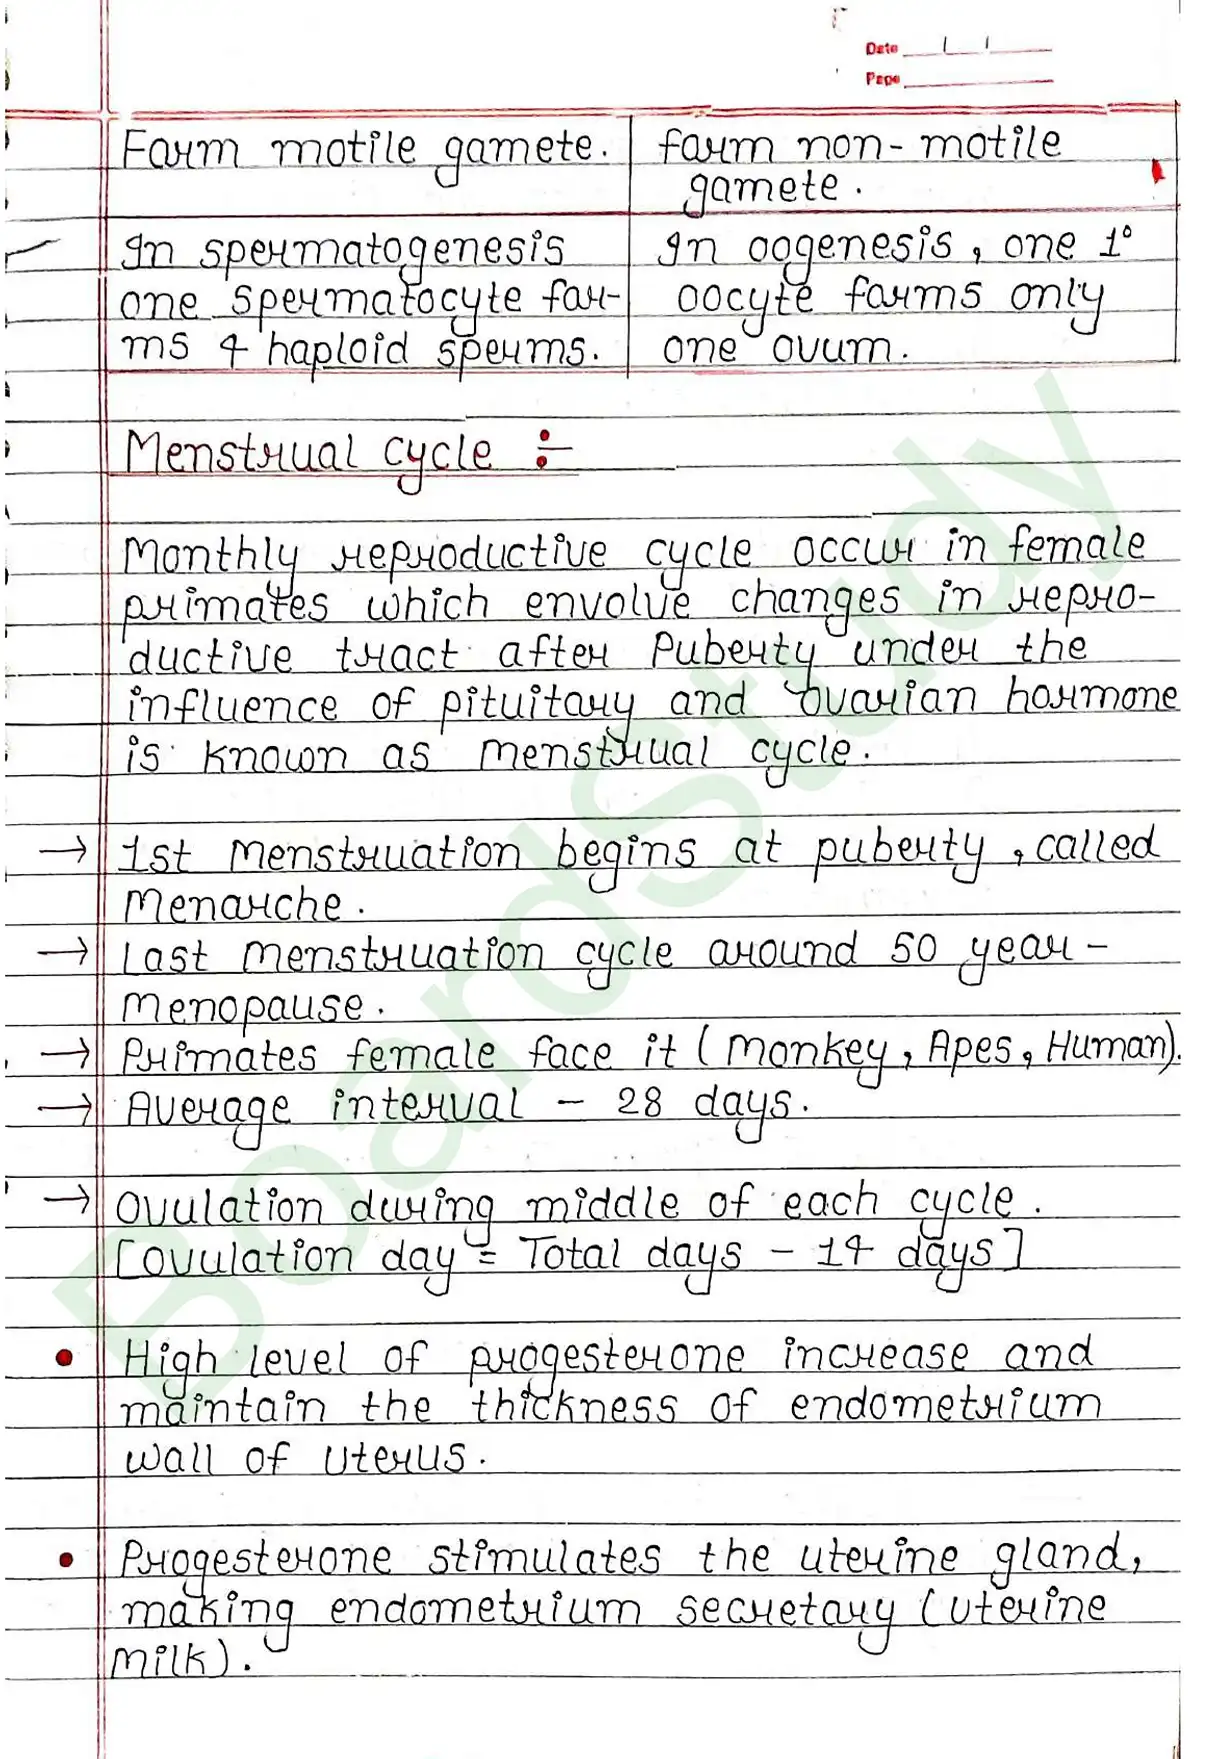 Date
Page
Form motile gamete.
form non-motile
gamete.
In spermatogenesis
one spermatocyte for-
ms 4 haploid sperms.
In oogenesis, one 1°
oocyte forms only
one ovum.
Menstrual cycle ÷
Monthly reproductive cycle occur in female
primates which envolve changes in repro-
ductive tract after Puberty under the
influence of pituitary and ovarian hormone
is known as menstrual cycle.
→ 1st menstruation begins at puberty, called
Menarche.
→ Last menstruation cycle around 50 year -
Menopause.
→ Primates female face it (Monkey, Apes, Human).
→ Average interval - 28 days.
→ Ovulation during middle of each cycle.
[ovulation day = Total days - 14 days]
• High level of progesterone increase and
maintain the thickness of endometrium
wall of uterus.
• Progesterone stimulates the uterine gland,
making endometrium secretary (uterine
milk).
BoardStudy